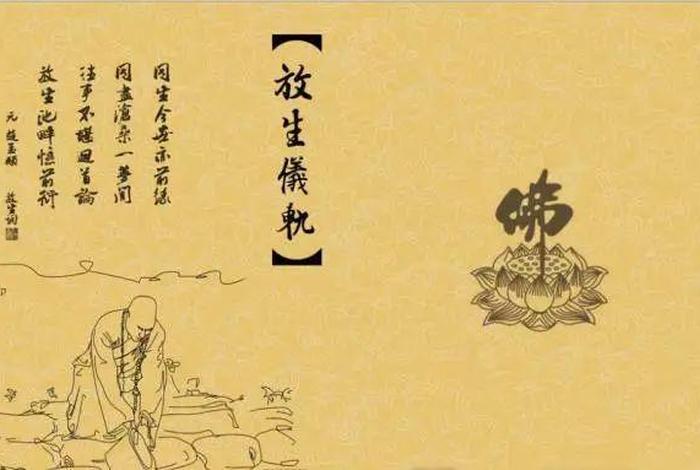 佛
【放生儀軌】
同生今世亦前緣
同盡滄桑一夢間
往事不堪回首論
放生池畔憶前愆
元 趙孟頫 放生詞